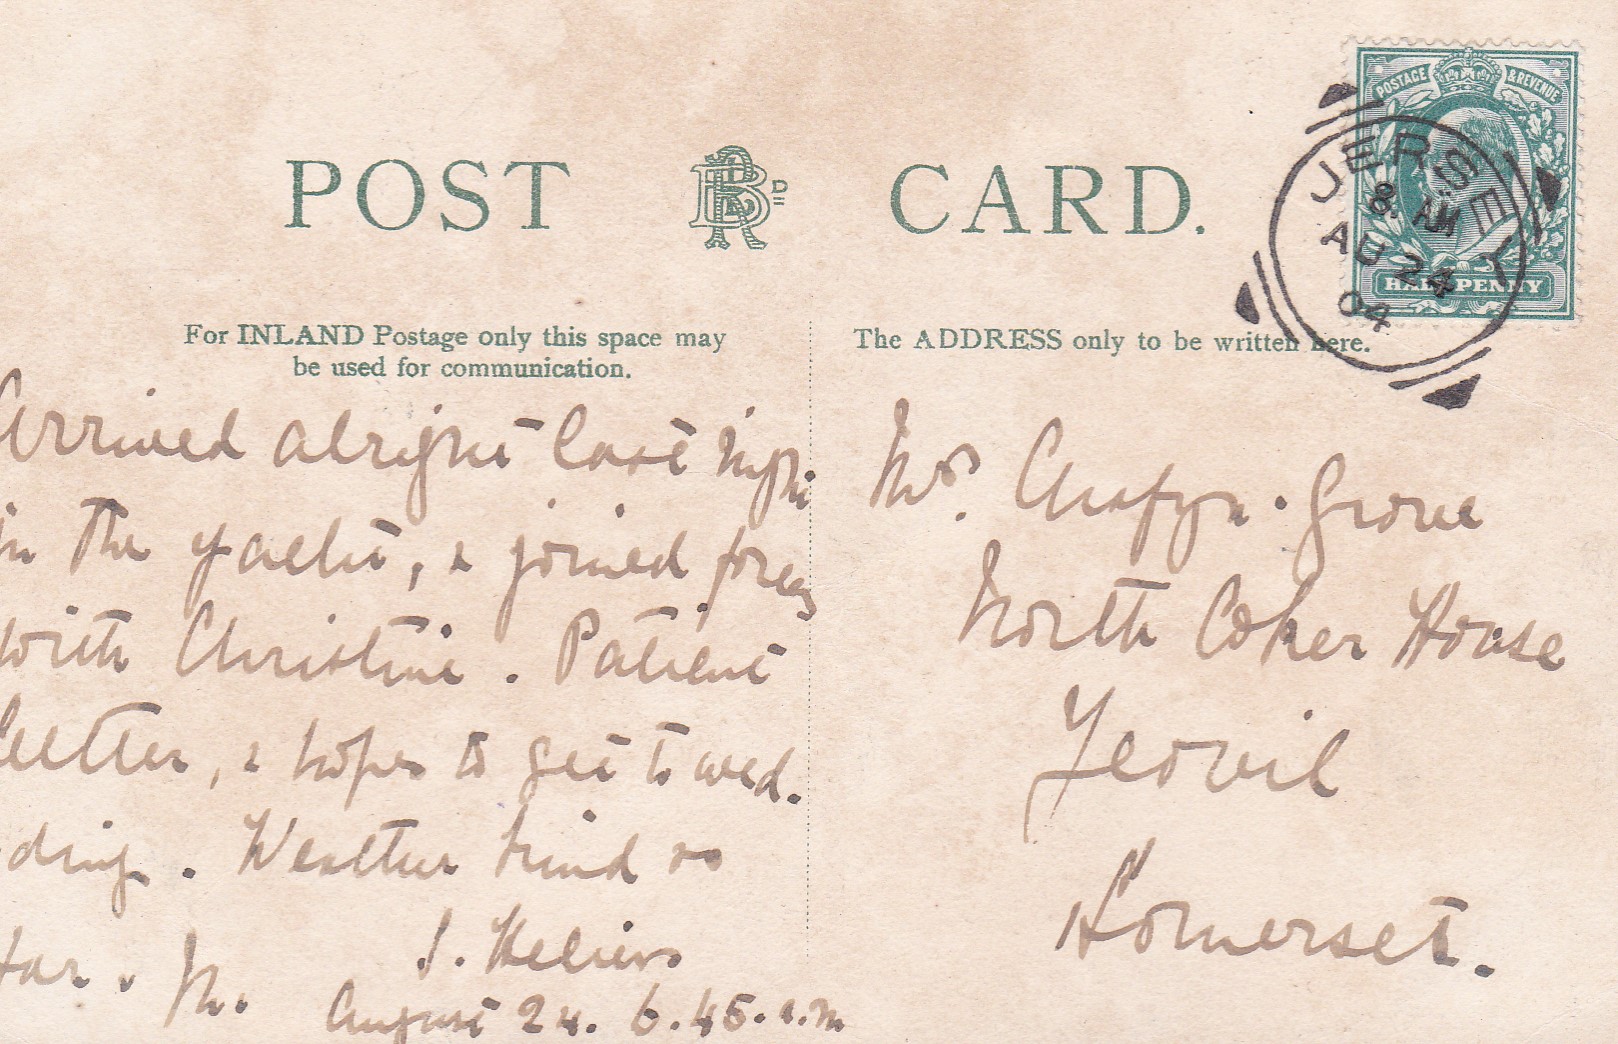 POST CARD.
POSTAGE & REVENUE
HALFPENNY
JERSEY
8. AM
AU 24
04
For INLAND Postage only this space may
be used for communication.
The ADDRESS only to be written here.
Arrived alright last night
in the yacht, & joined forces
with Christine. Patient
better, & hopes to get to wed.
ding. Weather kind so
far. M. S. Heliers
August 24. 6.45. a.m
Mrs. Chafyn-Grove
North Coker House
Yeovil
Somerset.